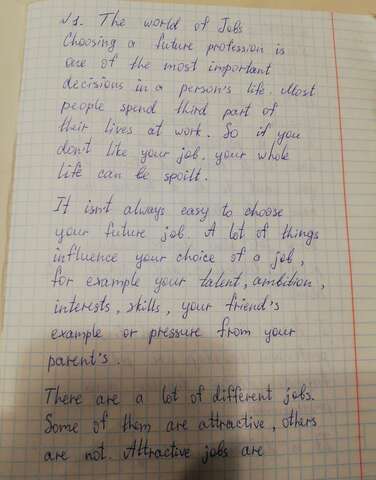 √1. The world of Jobs
Choosing a future profession is
one of the most important
decisions in a person's life. Most
people spend third part of
their lives at work. So if you
don't like your job, your whole
life can be spoilt.
It isn't always easy to choose
your future job. A lot of things
influence your choice of a job,
for example your talent, ambition,
interests, skills, your friend's
example or pressure from your
parent's.
There are a lot of different jobs.
Some of them are attractive, others
are not. Attractive jobs are